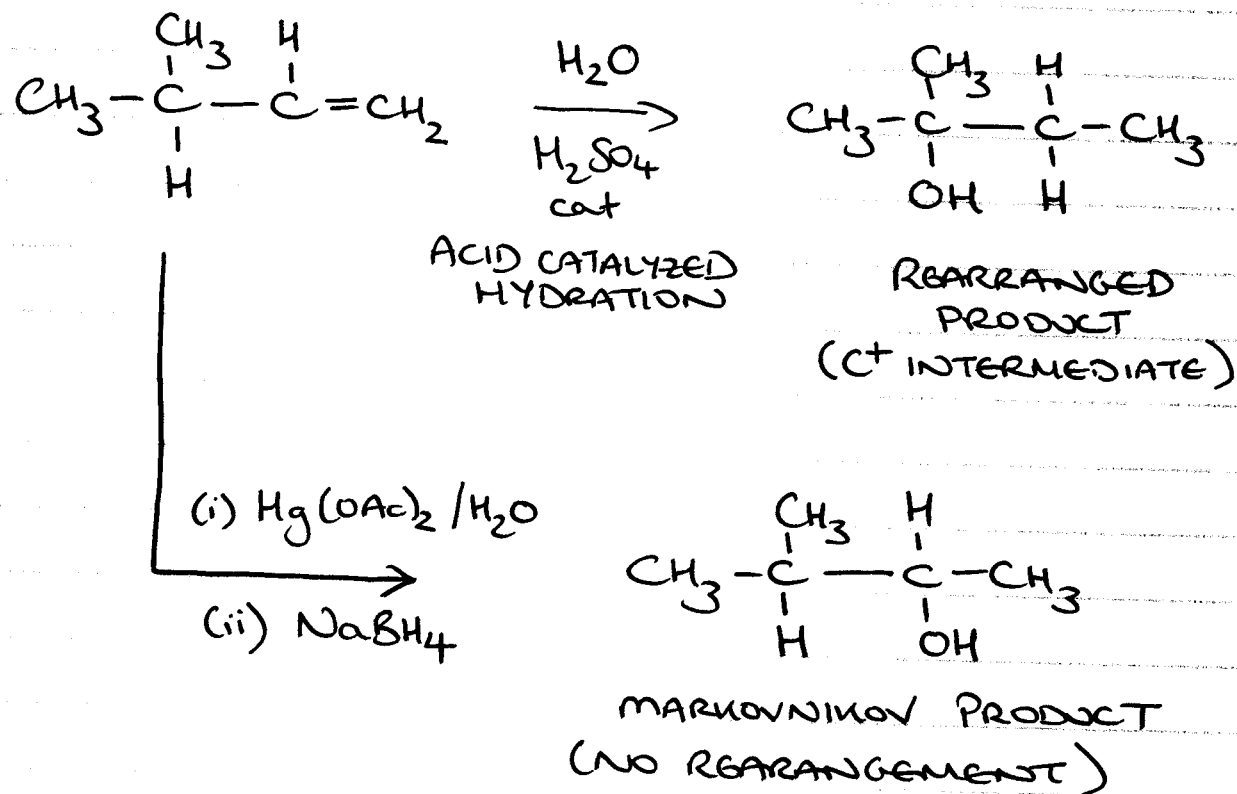 CH3 H
CH3-C-C=CH2
H
H2O
H2SO4
cat
ACID CATALYZED
HYDRATION
CH3 H
CH3-C-C-CH3
OH H
REARRANGED
PRODUCT
(C+ INTERMEDIATE)
(i) Hg(OAc)2/H2O
(ii) NaBH4
CH3 H
CH3-C-C-CH3
H OH
MARKOVNIKOV PRODUCT
(NO REARANGEMENT)